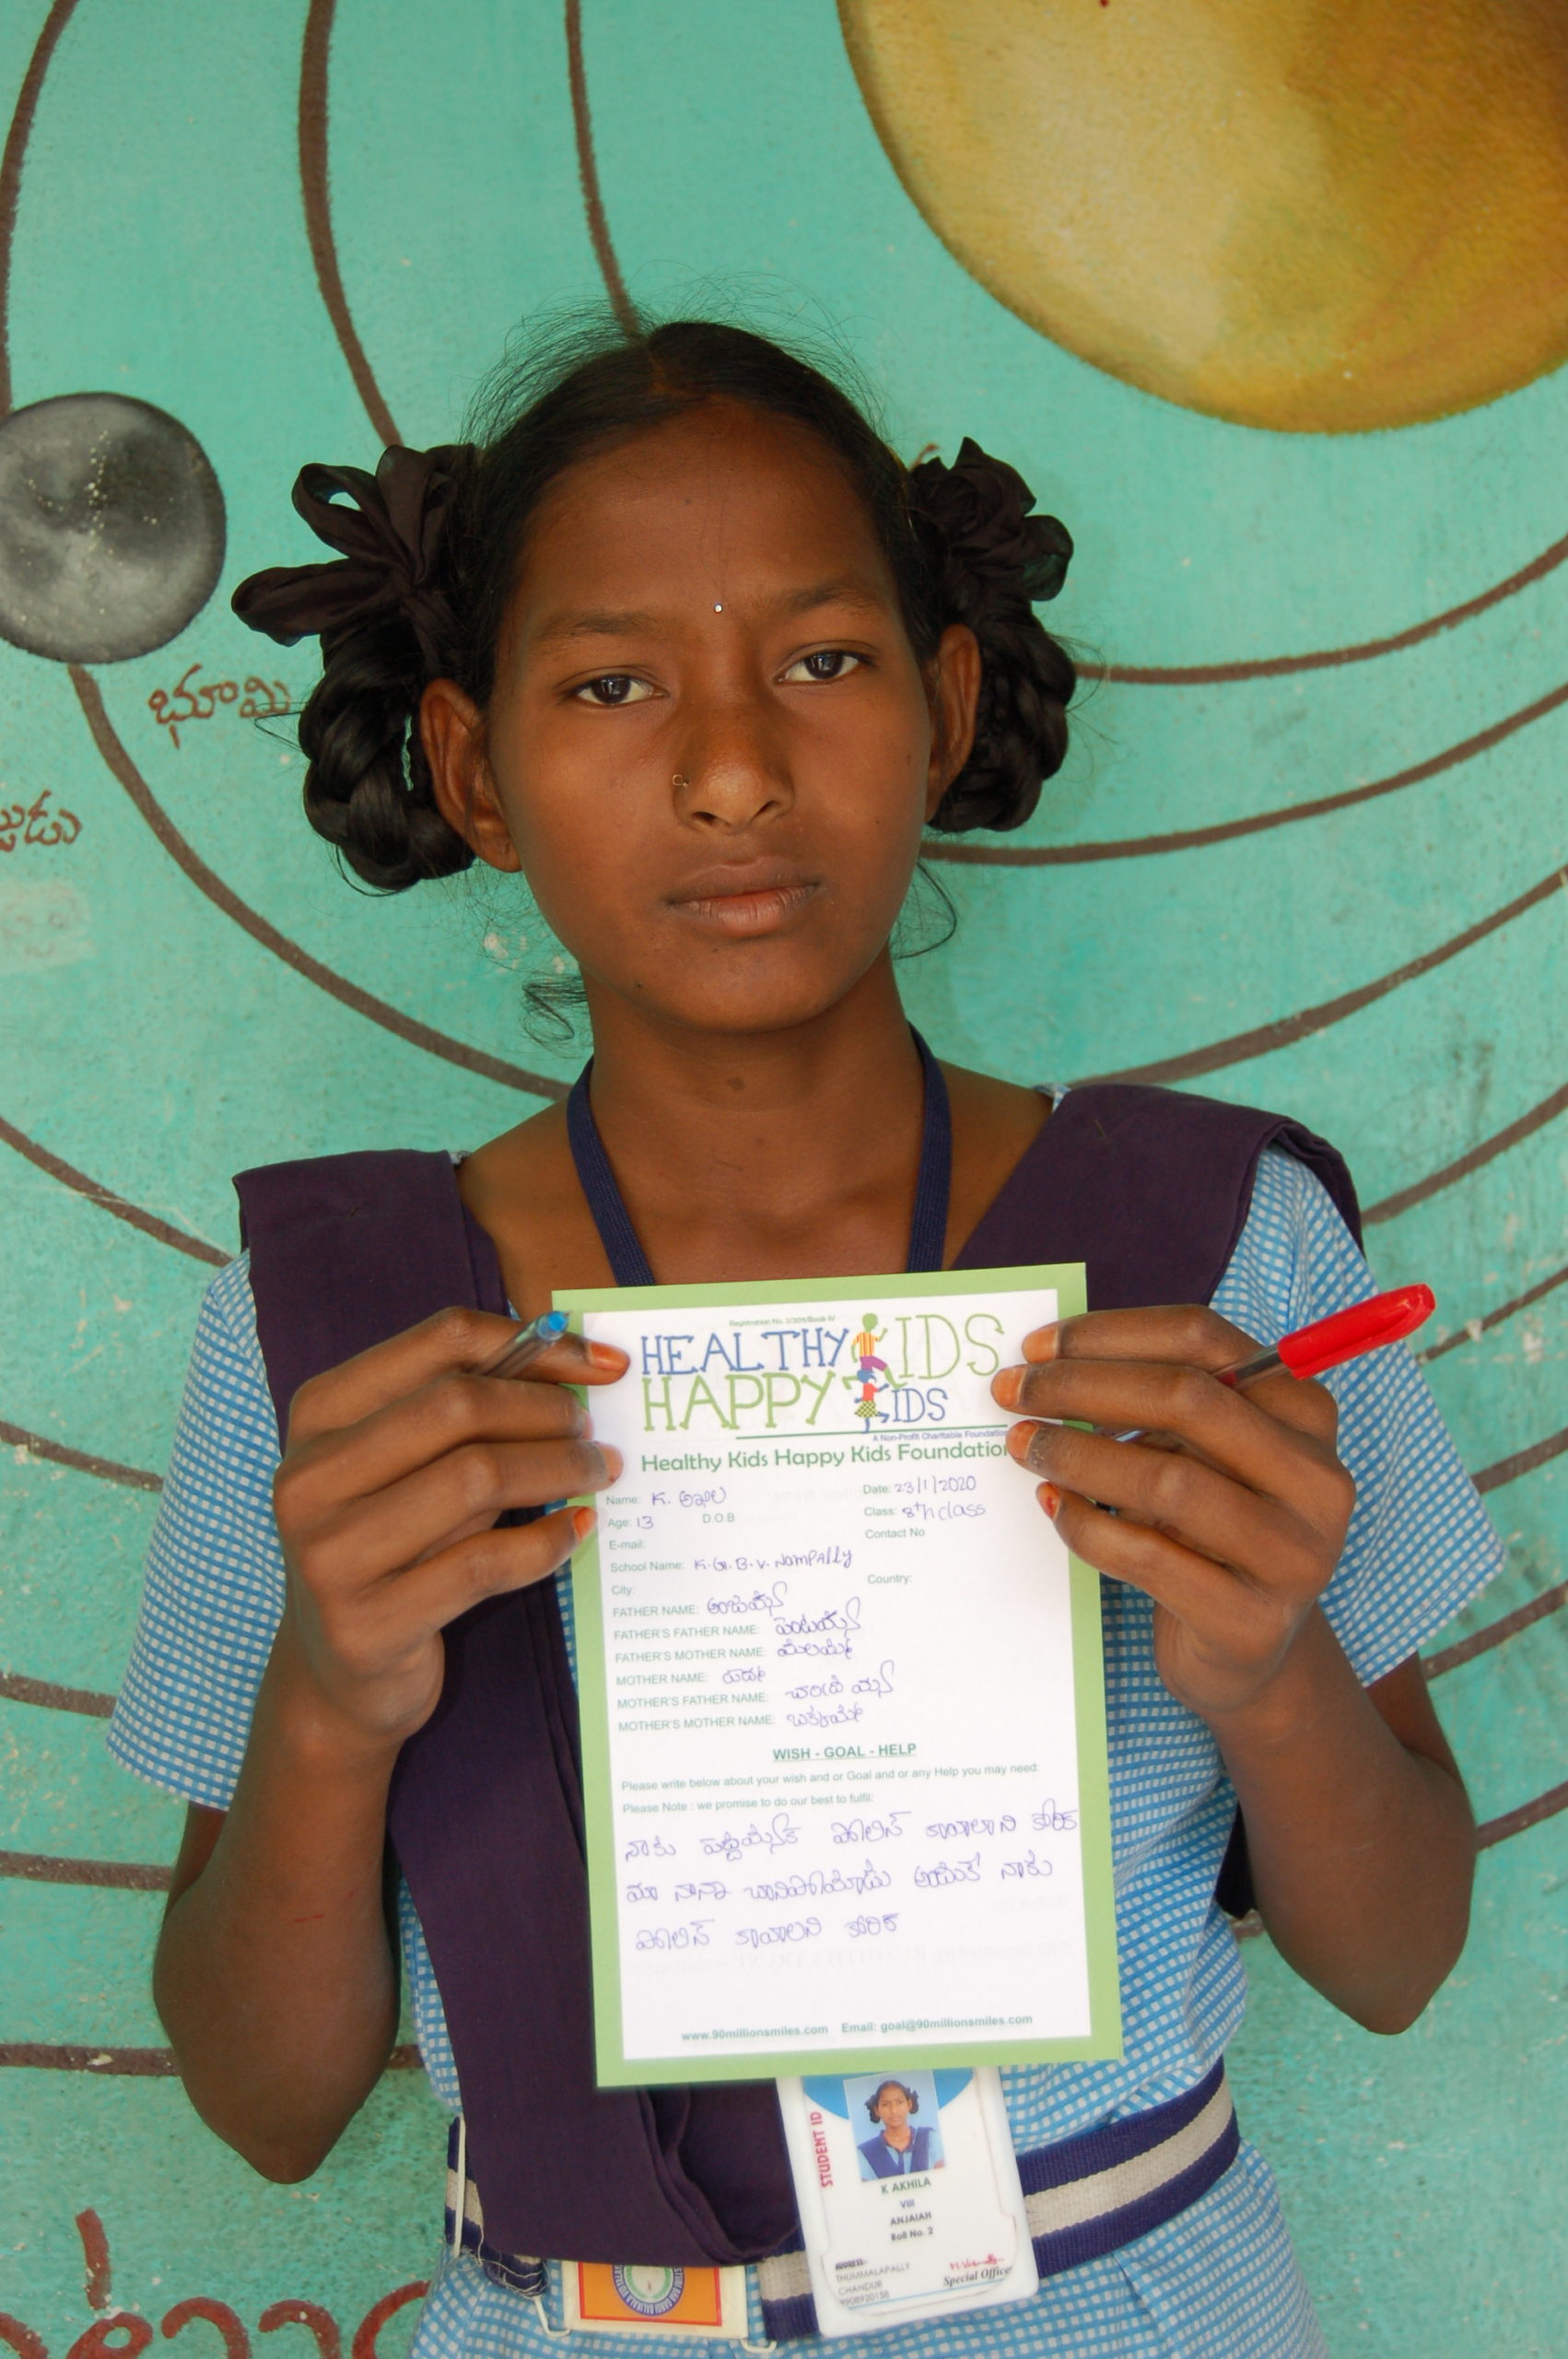 భూమి
Registration No. 3/2011/Book IV
HEALTHY KIDS
HAPPY KIDS
A Non-Profit Charitable Foundation
Healthy Kids Happy Kids Foundation
Name: K. అఖిల Date: 23/1/2020
Age: 13 D.O.B Class: 8th class
E-mail: Contact No
School Name: K.G.B.V. Nampally
City: Country:
FATHER NAME: అంజయ్య
FATHER'S FATHER NAME: పెంటయ్య
FATHER'S MOTHER NAME:
MOTHER NAME:
MOTHER'S FATHER NAME:
MOTHER'S MOTHER NAME:
WISH - GOAL - HELP
Please write below about your wish and or Goal and or any Help you may need.
Please Note : we promise to do our best to fulfil:
నాకు పెద్దయ్యాక పోలిస్ కావాలని కోరిక
మా నాన్నా చానిపోయాడు అందుకే నాకు
పోలిస్ కావాలని కోరిక
www.90millionsmiles.com Email: goal@90millionsmiles.com
STUDENT ID
K AKHILA
VIII
ANJAIAH
Roll No. 2
THUMMALAPALLY
CHANDUR
9908920158
Special Officer